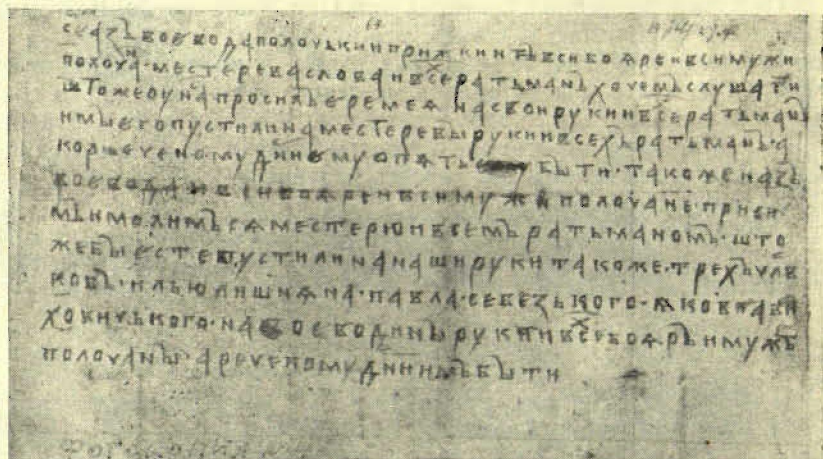 воевода полоцкии при кнѧ вси боѧре и вси мужи
полоча· местерева слова и всє ратьманъ хочемъ слушати
што же оу на просилъ єремеѧ на свои руки и всє ратьманъ
имы єго пустили на местеревы руки и всехъ ратьманъ· а
рченому дни єму опѧть быти· тако женазъ
воевода и вси боѧре и вси мужи полочане· приєи
мъ и молимъ сѧ местерю и всемъ ратьманомъ· што
же бы єсте пустили на наши руки тако же· трехъ улв
ковъ· илью лишнѧна· павла· себезького· ѧкова
ховицького· на воєводинъ руки и всє боѧръ и мужь
полочанъ· а реченому дни имъ быти